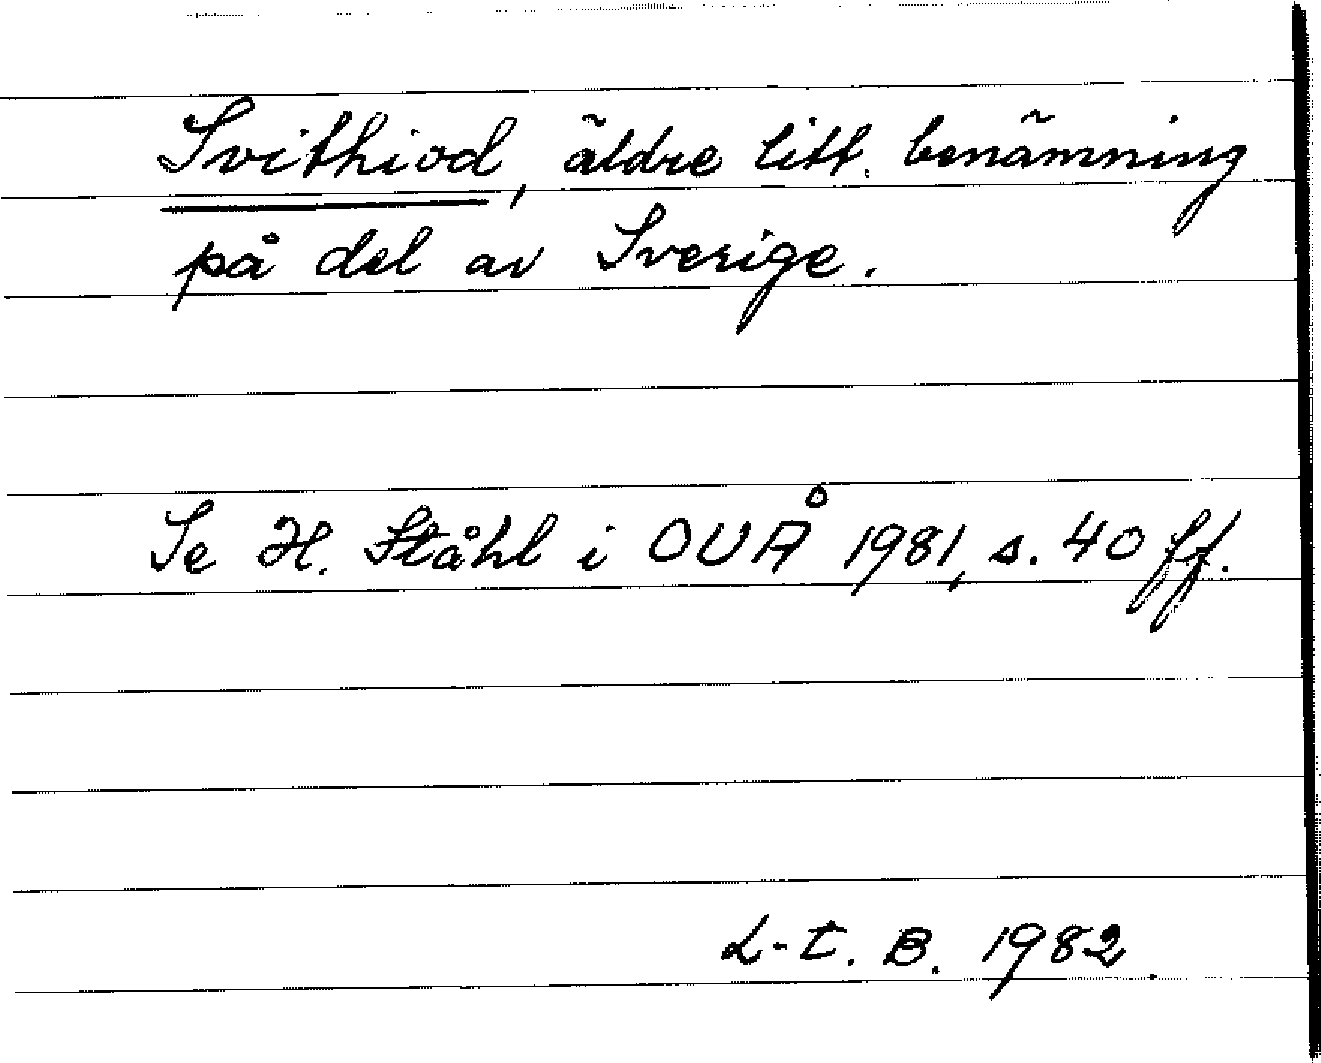 Svithiod, äldre litt. benämning
på del av Sverige.
Se H. Ståhl i OUÅ 1981, s. 40 ff.
L-t. B. 1982.